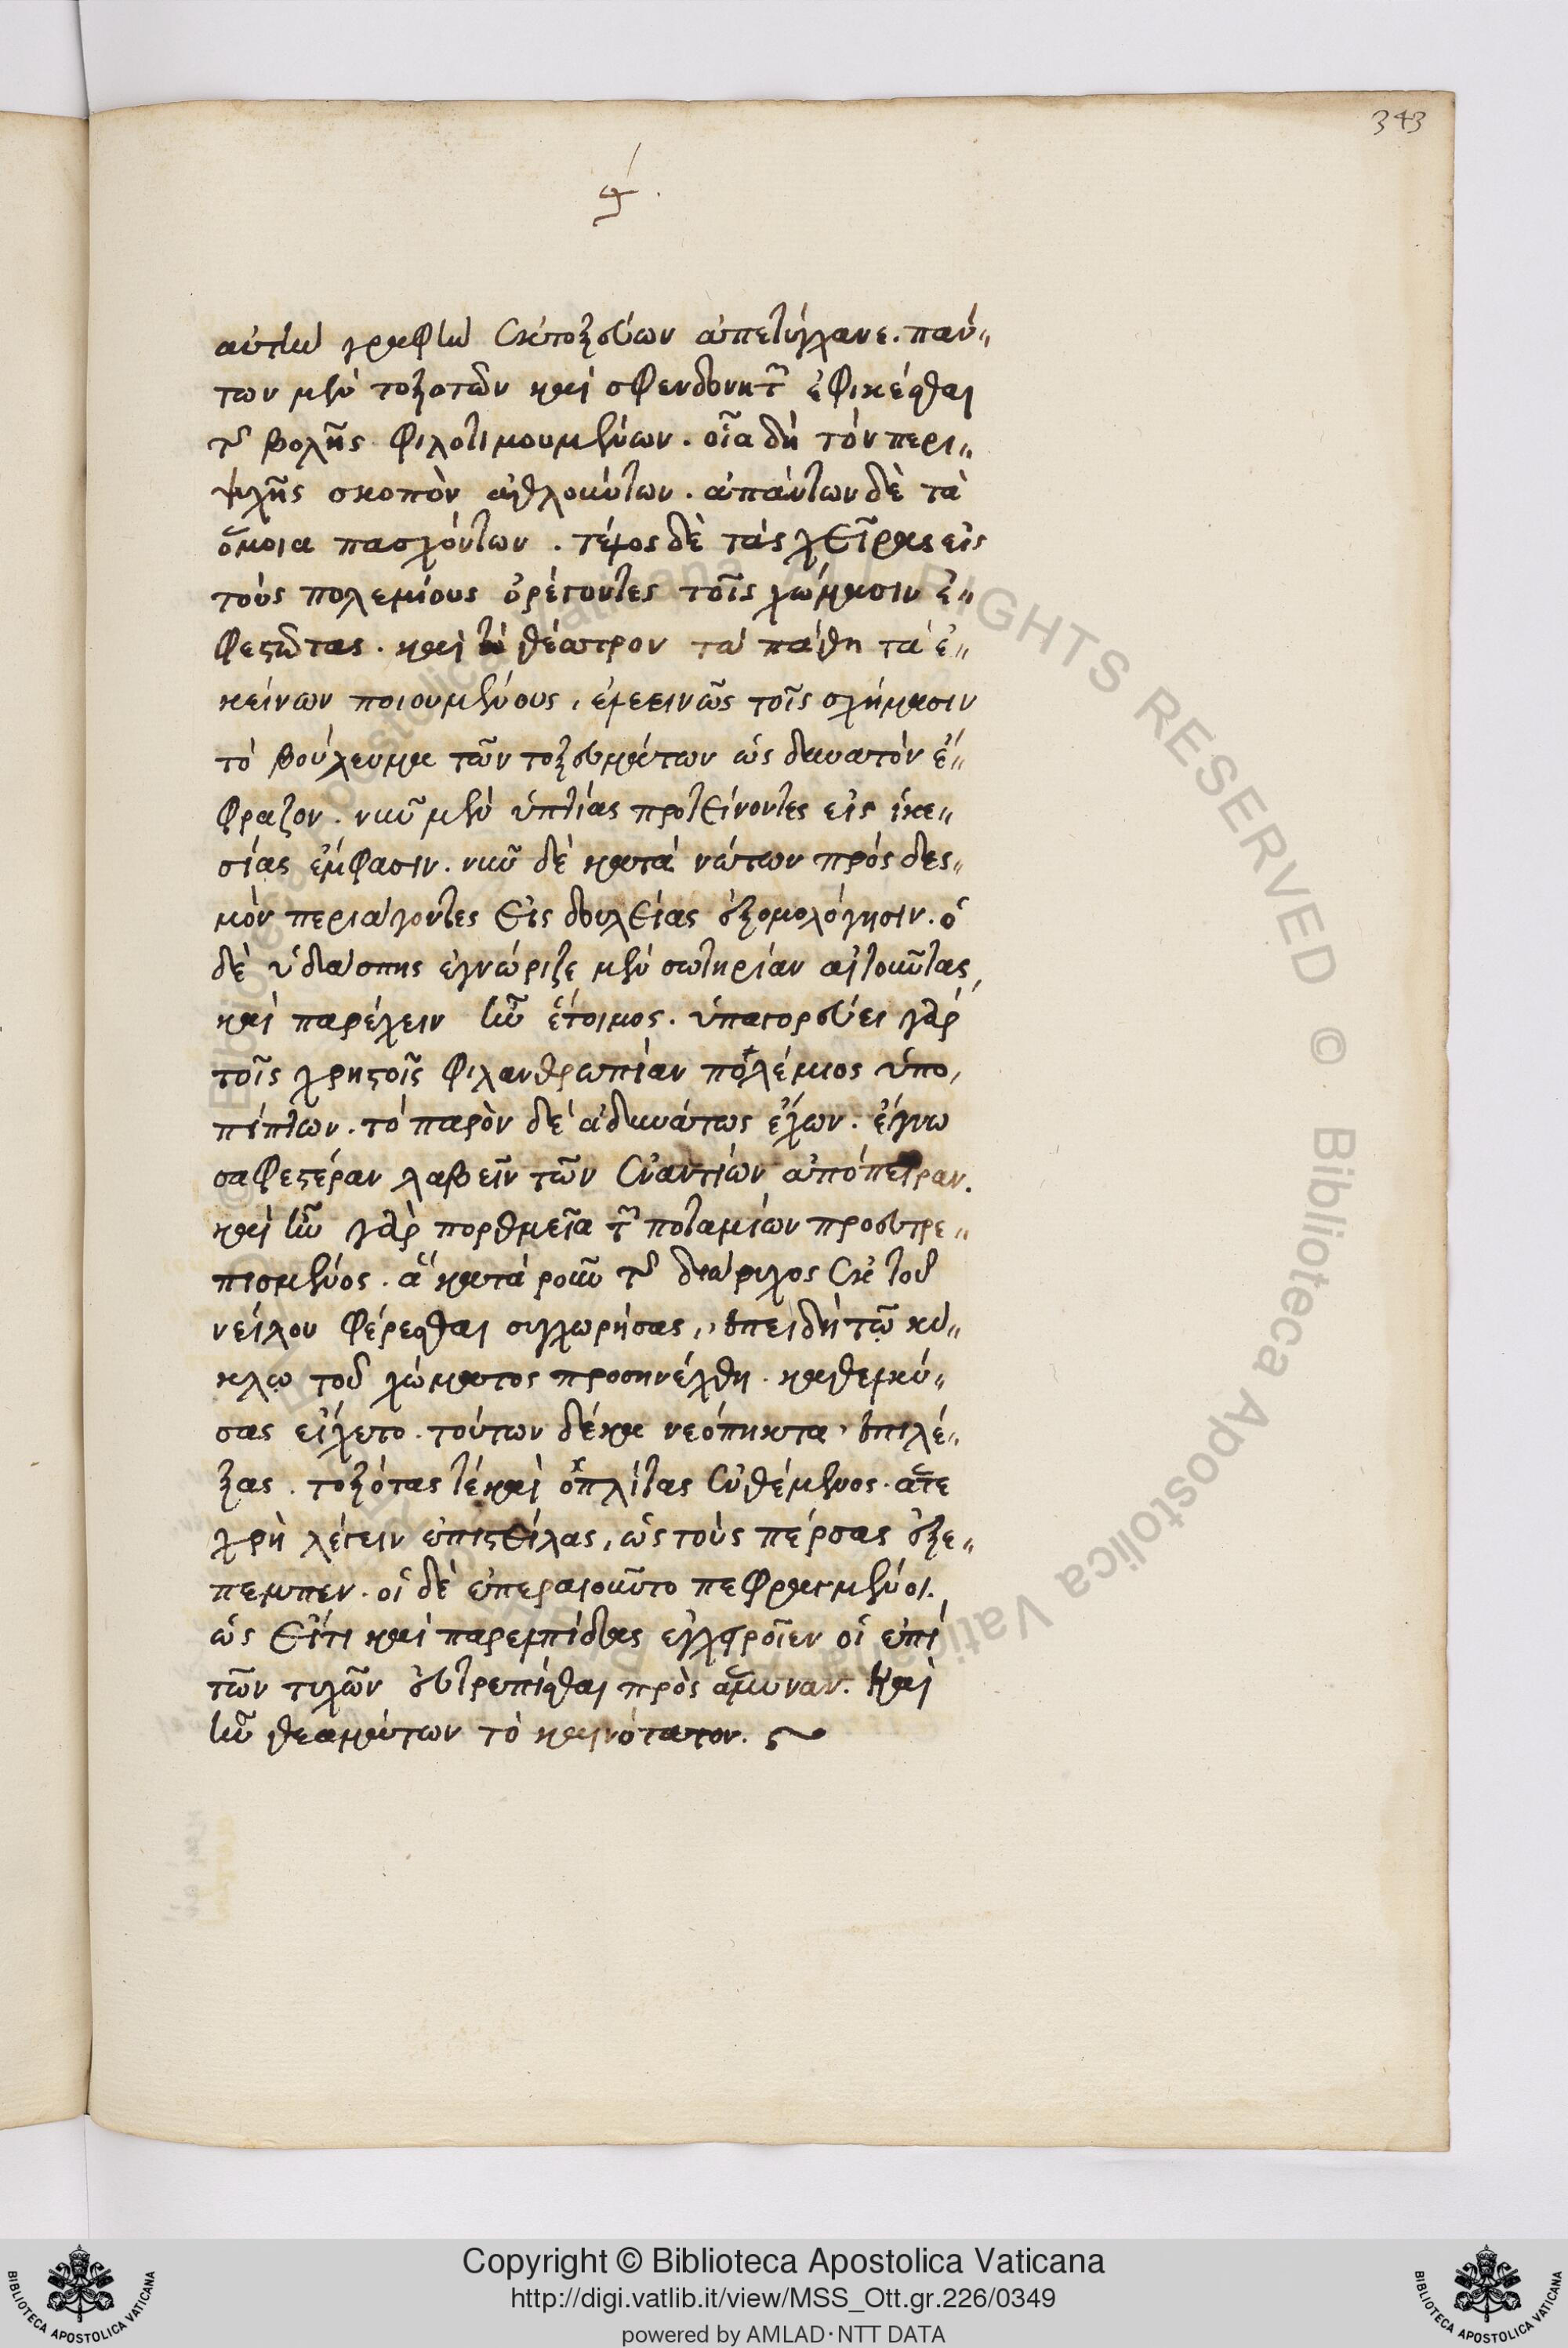 343
ϟ΄.
αὐτὴν γραφὴν ἐκτοξεύων ἀπετύγχανε. πάν„
των μὲν τοξοτῶν καὶ σφενδονητῶν ἐφικέσθαι
τῆς βολῆς φιλοτιμουμένων. οἷα δὴ τὸν περὶ„
ψυχῆς σκοπὸν ἀθλούντων. ἁπάντων δὲ τὰ
ὅμοια πασχόντων. τέλος δὲ τὰς χεῖρας εἰς
τοὺς πολεμίους ὀρέγοντες τοῖς χώμασιν ἐ„
φεστῶτας. καὶ θέατρον τὰ πάθη τὰ ἐ„
κείνων ποιουμένους, ἐλεεινῶς τοῖς σχήμασιν
τὸ βούλευμα τῶν τοξευμάτων ὡς δυνατὸν ἔ„
φραζον. νῦν μὲν ὑπτίας προτείνοντες εἰς ἱκε„
σίας ἔμφασιν. νῦν δὲ κατὰ νώτων πρὸς δεσ„
μὸν περιάγοντες εἰς δουλείας ἐξομολόγησιν. ὁ
δὲ ὑδάσπης ἐγνώριζε μὲν σωτηρίαν αἰτοῦντας,
καὶ παρέχειν ἦν ἕτοιμος. ὑπαγορεύει γὰρ
τοῖς χρηστοῖς φιλανθρωπίαν πολέμιος ὑπο,
πίπτων. τὸ παρὸν δὲ ἀδυνάτως ἔχων. ἔγνω
σαφεστέραν λαβεῖν τῶν ἐναντίων ἀπόπειραν.
καὶ ἦν γὰρ πορθμεῖα τῶν ποταμίων προευτρε„
πισμένος. ἃ κατὰ ροῦν τῆς διώρυχος ἐκ τοῦ
νείλου φέρεσθαι συγχωρήσας, ἐπειδὴ τῷ κύ„
κλω τοῦ χώματος προσηνέχθη. καθελκύ„
σας εἴχετο. τούτων δέκα νεόπηκτα ἐπιλέ„
ξας. τοξότας τὲ καὶ ὁπλίτας ἐνθέμενος. ἅτε
χρὴ λέγειν ἐπιστείλας, ὡς τοὺς πέρσας ἐξέ„
πεμπεν. οἱ δὲ ἐπεραιοῦντο πεφραγμένοι.
ὡς εἴτι καὶ παρ' ἐλπίδας ἐγχειροῖεν οἱ ἐπὶ
τῶν τειχῶν εὐτρεπίσθαι πρὸς ἄμυναν. Καὶ
ἦν θεαμάτων τὸ καινότατον.
Copyright © Biblioteca Apostolica Vaticana
http://digi.vatlib.it/view/MSS_Ott.gr.226/0349
powered by AMLAD·NTT DATA